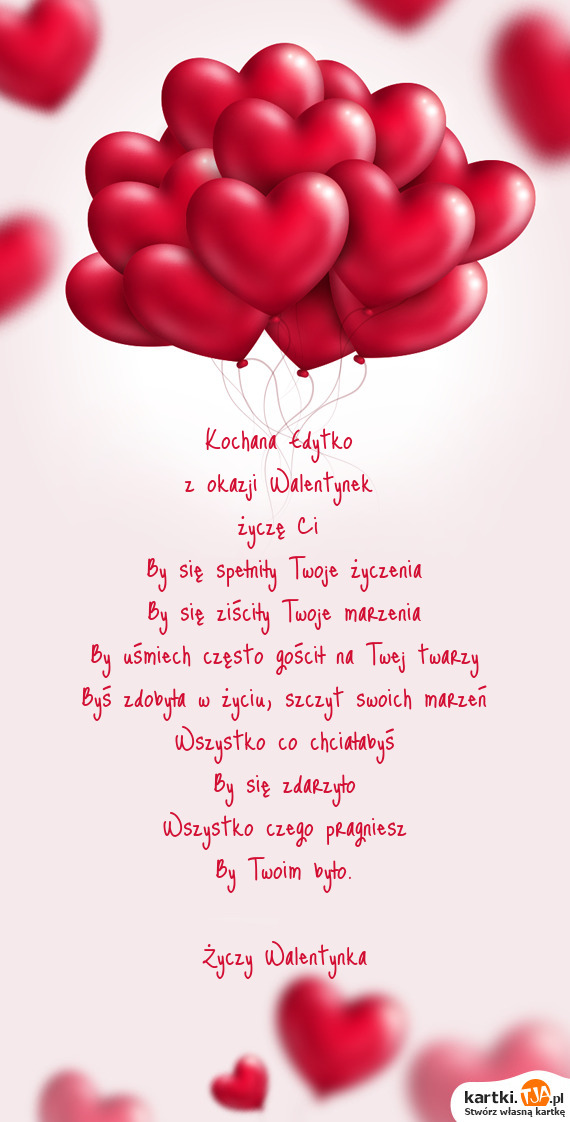 Kochana Edytko
z okazji Walentynek
życzę Ci
By się spełniły Twoje życzenia
By się ziściły Twoje marzenia
By uśmiech często gościł na Twej twarzy
Byś zdobyła w życiu, szczyt swoich marzeń
Wszystko co chciałabyś
By się zdarzyło
Wszystko czego pragniesz
By Twoim było.
Życzy Walentynka
kartki.TJA.pl
Stwórz własną kartkę